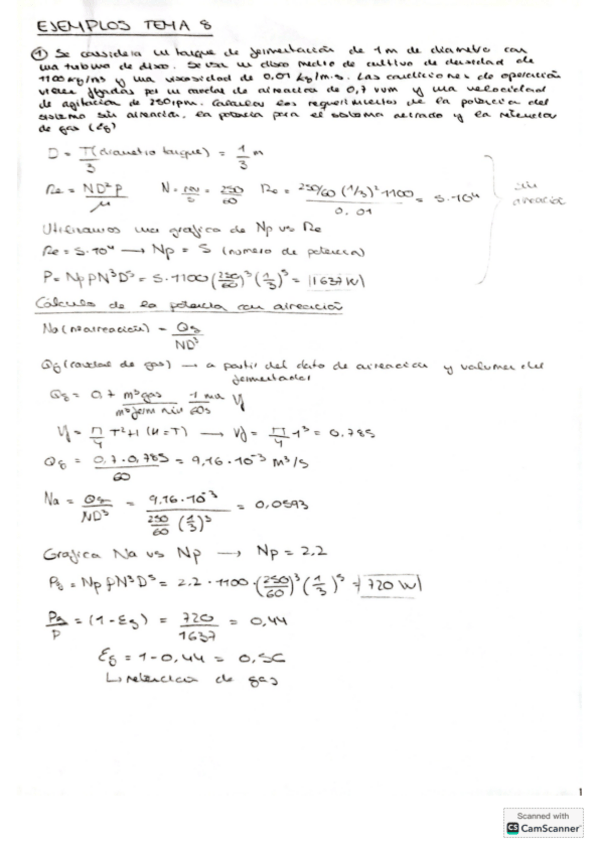 EJEMPLOS TEMA 8
① Se considera un tanque de fermentación de 1m de diametro con
una turbina de disco. Se usa un disco medio de cultivo de densidad de
1100 kg/m3 y una viscosidad de 0,01 kg/m·s. Las condiciones de operación
vienen fijadas por un caudal de aireación de 0,7 vvm y una velocidad
de agitación de 250 rpm. Calcular los requerimientos de la potencia del
sistema sin aireación, la potencia para el sistema aireado y la retención
de gas (εg)
D = T(diametro tanque)/3 = 1/3 m
Re = ND²ρ/μ N = rev/s = 250/60 Re = 250/60 (1/3)² 1100/0.01 = 5·10⁴ sin aireación
Utilizamos una grafica de Np vs Re
Re = 5·10⁴ → Np = 5 (numero de potencia)
P = NpρN³D⁵ = 5·1100(250/60)³(1/3)⁵ = 1637 W
Cálculo de la potencia con aireación
Na (nº aireación) = Qg/ND³
Qg (caudal de gas) → a partir del dato de aireación y volumen del
fermentador
Qg = 0,7 m³gas/m³ferm min 1 min/60s Vf
Vf = π/4 T²H (H=T) → Vf = π/4 1³ = 0.785
Qg = 0,7·0,785/60 = 9,16·10⁻³ m³/s
Na = Qg/ND³ = 9,16·10⁻³/250/60 (1/3)³ = 0,0593
Grafica Na vs Np → Np = 2,2
Pg = NpρN³D⁵ = 2.2·1100·(250/60)³(1/3)⁵ = 720 W
Pg/P = (1-εg) = 720/1637 = 0,44
εg = 1-0,44 = 0,56
↳ retencion de gas
1
Scanned with
CS CamScanner